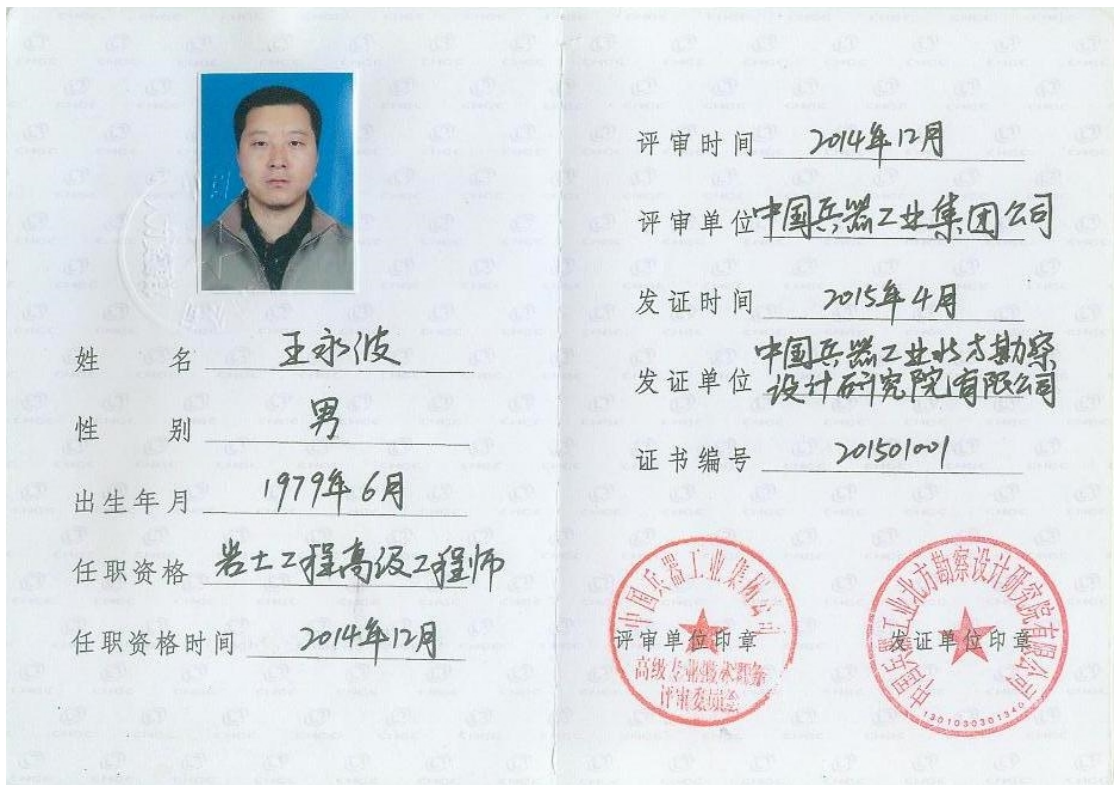 姓名 王永波
性别 男
出生年月 1979年6月
任职资格 岩土工程高级工程师
任职资格时间 2014年12月
评审时间 2014年12月
评审单位 中国兵器工业集团公司
发证时间 2015年4月
发证单位 中国兵器工业北方勘察
设计研究院有限公司
证书编号 201501001
中国兵器工业集团公司
评审单位印章
高级专业技术职务
评审委员会
中国兵器工业北方勘察设计研究院有限公司
发证单位印章
1301030301346
CNGC